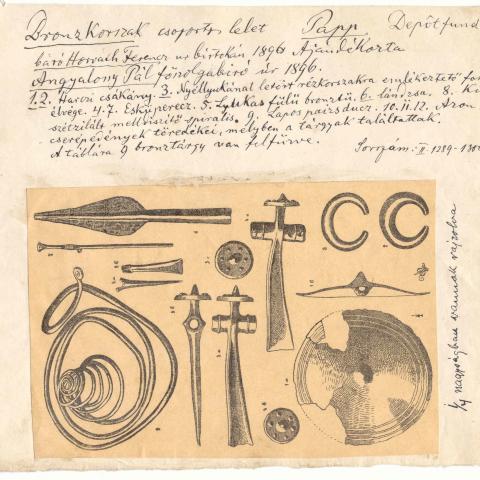 Bronzkorszak csoportos lelet Papp Depôtfund
báró Horváth Ferencz úr birtokán 1896 Ajándékozta
Angyalony Pál főszolgabíró úr 1896.
1.2. Harczi csákány. 3. Nyéllyukánál letört rézkorszakra emlékeztető
elvége. 4.7. Eskü perecz. 5. Lyukas fülü bronztű. 6. lándzsa. 8.
szétzilált mellvédő spirális. 9. Lapos paizs ducz. 10. 11. 12. Azon
cserépedények töredékei, melyben a tárgyak találtattak.
A táblára 9 bronztárgy van felfűzve. Sorszám: II 1389-
nagyságban vannak rajzolva